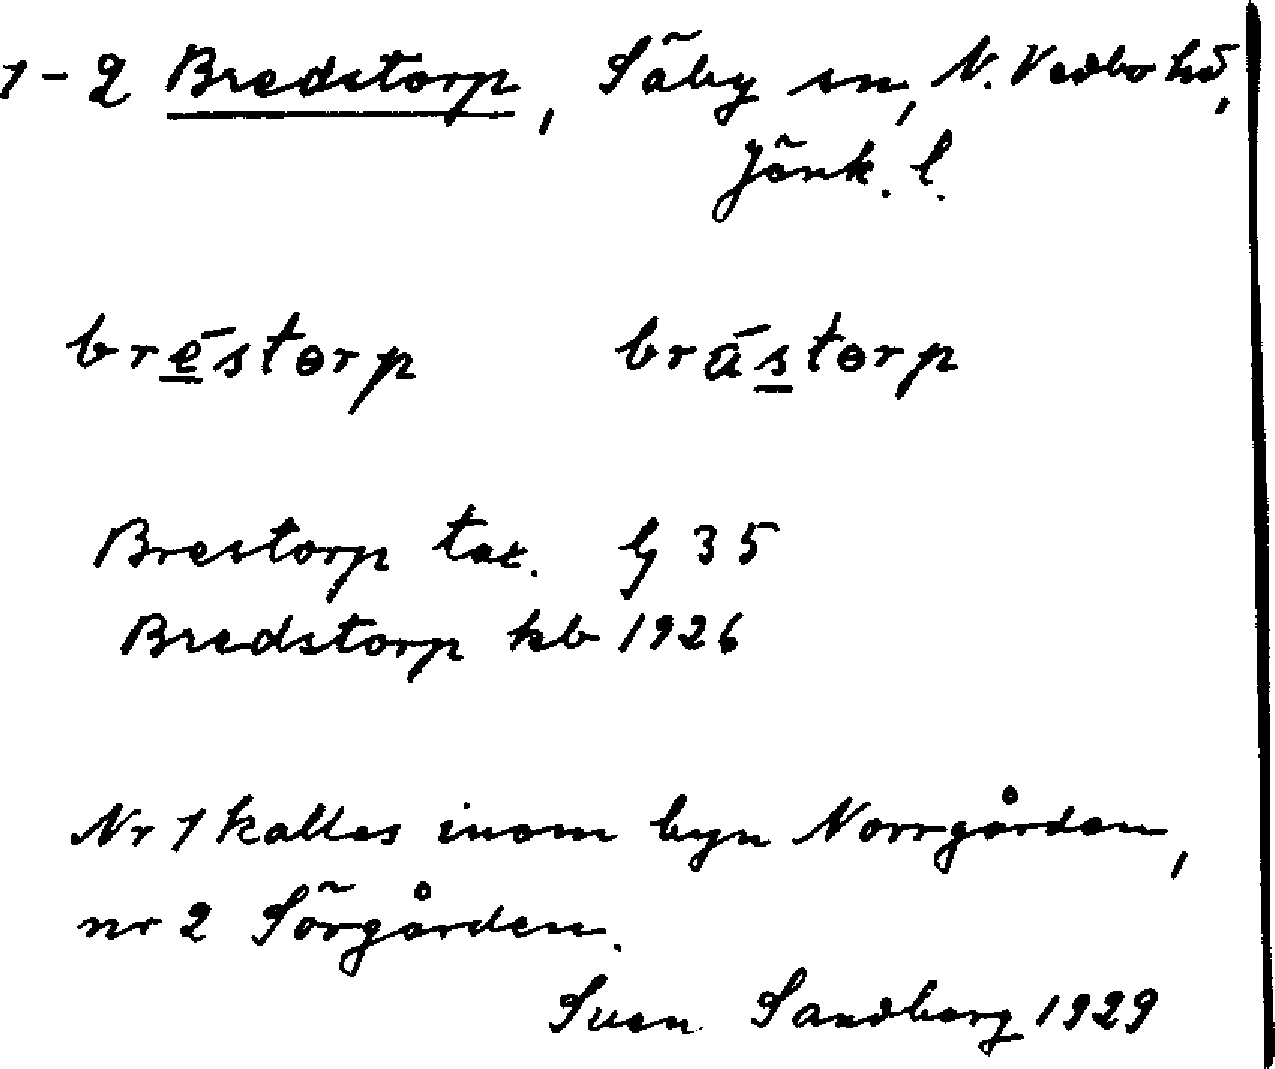 1-2 Bredstorp, Säby sn, N. Vedbo hd,
Jönk. l.
bréstɵrp brästɵrp
Brestorp tax. lj 35
Bredstorp kb 1926
Nr 1 kallas inom byn Norrgården,
nr 2 Sörgården.
Sven Sandberg 1929